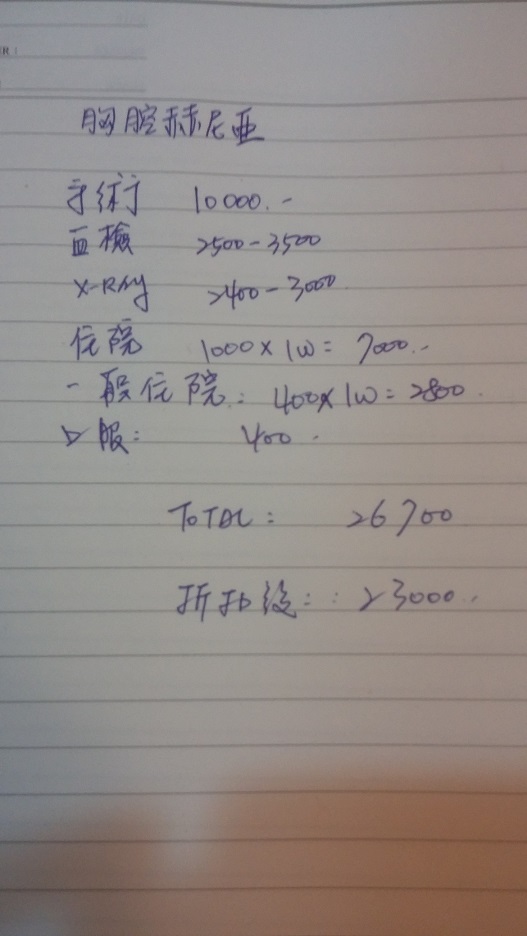 胸腔赫尼亞
手術 10000.-
血檢 2500-3500
X-RAY 2400-3000.
住院 1000×1W=7000.-
一般住院: 400×1W=2800.
口服: 400.
TOTAL: 26700
折扣後: 23000..